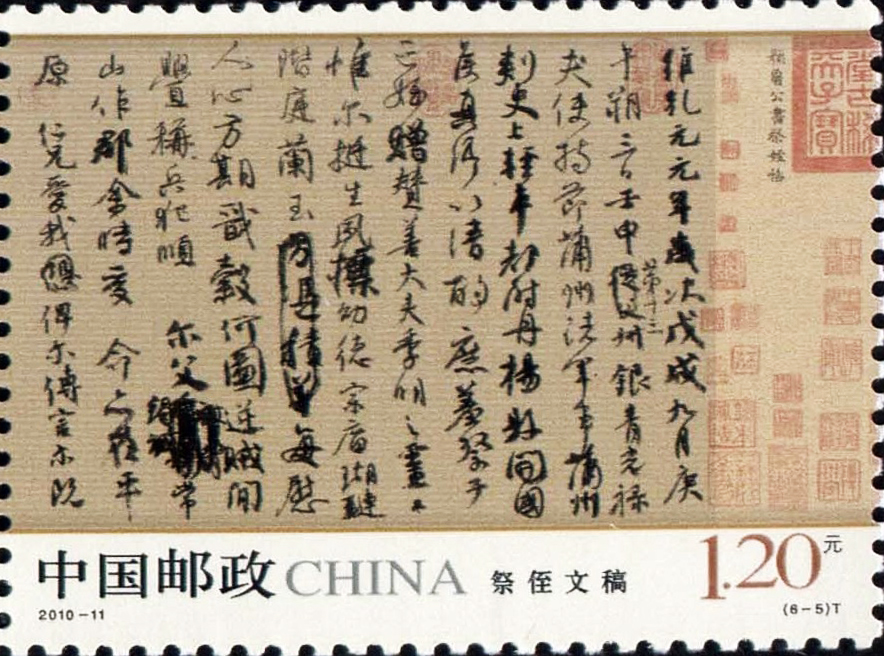 顏魯公書祭姪帖
維乾元元年歲次戊戌九月庚
午朔三日壬申第十三從父銀青光祿
夫使持節蒲州諸軍事蒲州
刺史上輕車都尉丹楊縣開國
侯真卿以清酌庶羞祭于
亡姪贈贊善大夫季明之靈曰
惟爾挺生夙標幼德宗廟瑚璉
階庭蘭玉每慰
人心方期戩穀何圖逆賊閒
釁稱兵犯順 爾父竭誠常
山作郡余時受 命亦在平
原仁兄愛我俾爾傳言爾既
中国邮政 CHINA 祭侄文稿 1.20元
2010-11 (6-5)T